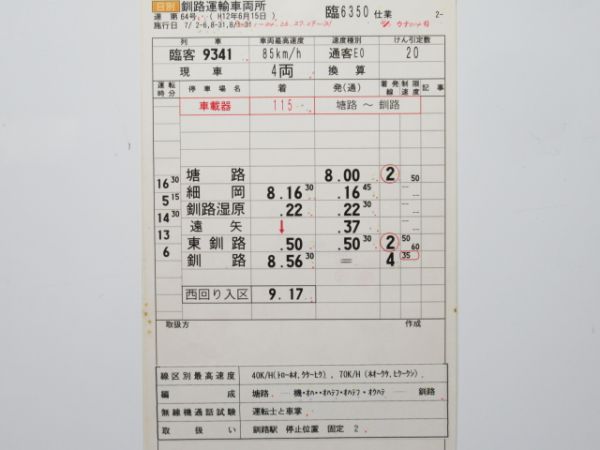 日別 釧路運輸車両所 臨6350 仕業
運 第 64号 ( H12年6月15日 ) 2-
施行日 7/ 2-6,8-31,8/
列 車 車両最高速度 速度種別 けん引定数
臨客 9341 85km/h 通客E0 20
現 車 4両 換 算
運転時分 停 車 場 名 着 発(通) 着発線 制限速度 記 事
車載器 115 塘路 ～ 釧路
塘 路 8.00 2 50
16 30
細 岡 8.16 30 .16 45
5 15
釧路湿原 .22 .22 30
14 30
遠 矢 ↓ .37
13
東 釧 路 .50 .50 30 2 50 60
6
釧 路 8.56 30 = 4 35
西回り入区 9.17
取扱方 作成
線区別最高速度 40K/H(ﾄﾛｰ本ｵ,ｸｹｰﾋｸ) , 70K/H (本ｵｰｸｹ,ﾋｸｰｸｼ)
編 成 塘路 機・ｵﾊ・・ｵﾊﾃﾌ・ｵﾊﾃﾌ・ｵｸﾊﾃ 釧路
無線機通話試験 運転士と車掌
取 扱 い 釧路駅 停止位置 固定 2